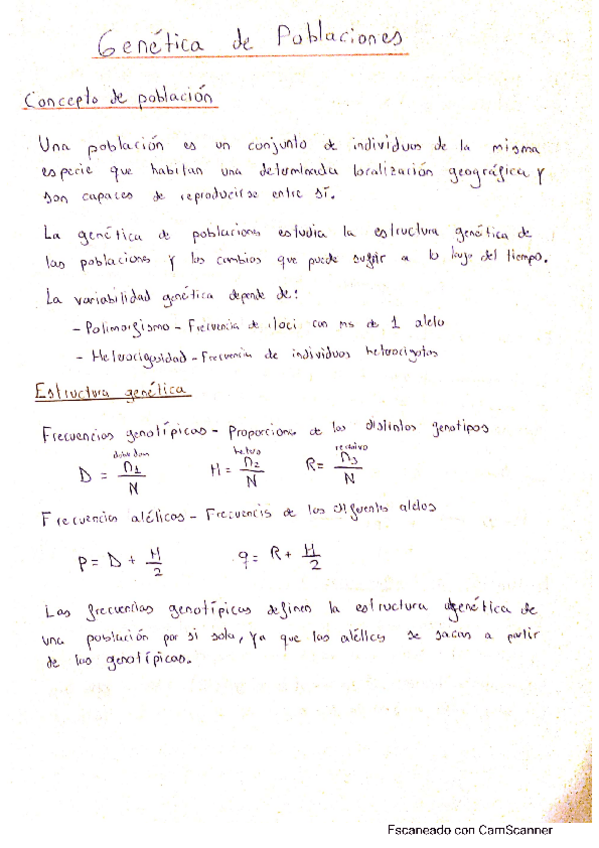 Genética de Poblaciones
Concepto de población
Una población es un conjunto de individuos de la misma
especie que habitan una determinada localización geográfica y
son capaces de reproducirse entre sí.
La genética de poblaciones estudia la estructura genética de
las poblaciones y los cambios que puede sufrir a lo largo del tiempo.
La variabilidad genética depende de:
- Polimorfismo - Frecuencia de loci con ms de 1 alelo
- Heterocigosidad - Frecuencia de individuos heterocigotos
Estructura genética
Frecuencias genotípicas - Proporciones de los distintos genotipos
hetero recesivo
D = n1/N H = n2/N R = n3/N
Frecuencias alélicas - Frecuencis de los diferentes alelos
P = D + H/2 q = R + H/2
Las frecuencias genotípicas definen la estructura genética de
una población por si sola, ya que las alélicas se sacan a partir
de las genotípicas.
Escaneado con CamScanner